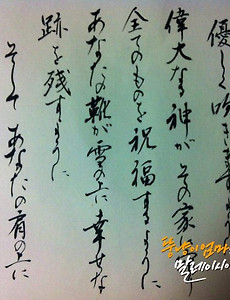 優しく吹きますよう
偉大な神がその家
全てのものを祝福するように
あなたの靴が雪の上に幸せな
跡を残すように
そして あなたの肩の上に
말레이시아